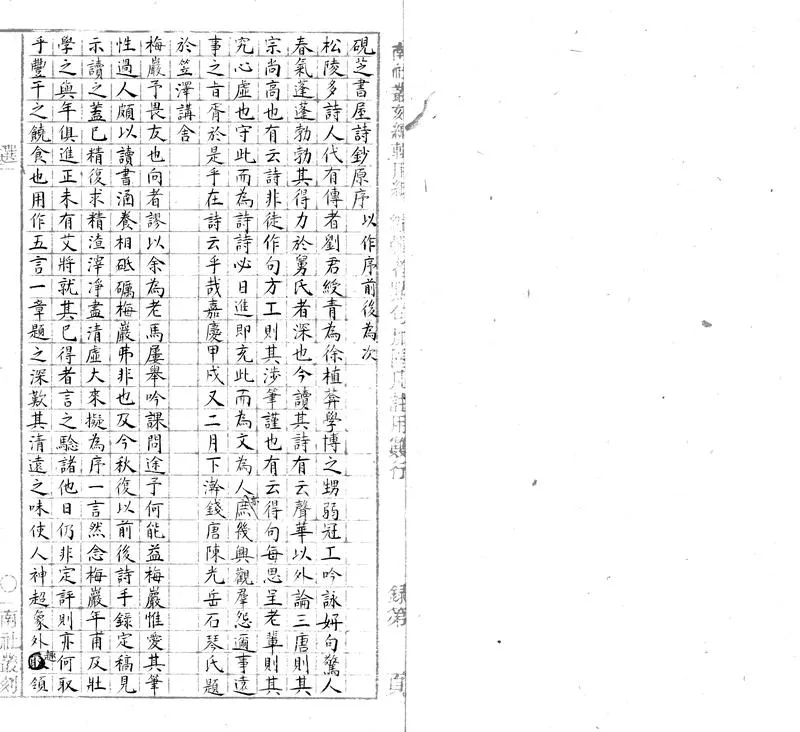 硯芝書屋詩鈔原序 以作序前後為次
松陵多詩人代有傳者劉君綬青為徐植菴學博之甥弱冠工吟詠好句驚人
春氣蓬蓬勃勃其得力於舅氏者深也今讀其詩有云聲華以外論三唐則其
宗尚高也有云詩非徒作句方工則其涉筆謹也有云得句每思呈老輩則其
究心虛也守此而為詩詩必日進即充此而為文為人庶幾興觀羣怨邇事遠
事之旨胥於是乎在詩云乎哉嘉慶甲戌又二月下澣錢唐陳光岳石琴氏題
於笠澤講舍
梅巖予畏友也向者謬以余為老馬屢舉吟課問途予何能益梅巖惟愛其筆
性過人頗以讀書涵養相砥礪梅巖弗非也及今秋復以前後詩手錄定稿見
示讀之蓋已精復求精渣滓凈盡清虛大來擬為序一言然念梅巖年甫及壯
學之與年俱進正未有艾將就其已得者言之驗諸他日仍非定評則亦何取
乎豐干之饒食也用作五言一章題之深歎其清遠之味使人神超象外趣領
選
南社叢刻